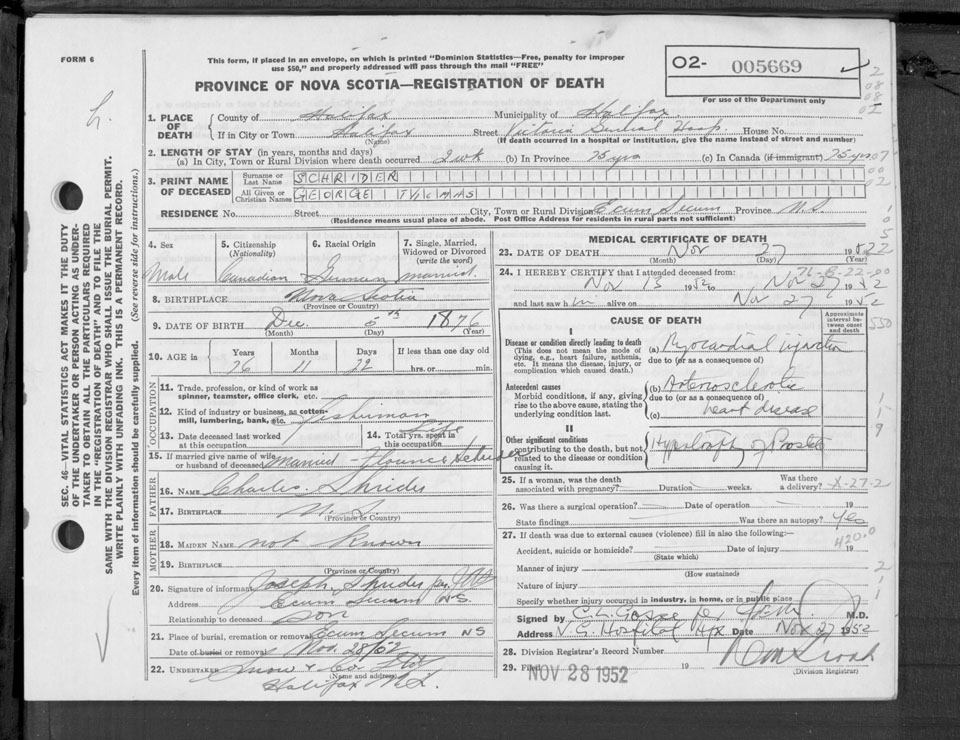 FORM 6
This form, if placed in an envelope, on which is printed "Dominion Statistics—Free, penalty for improper
use $50," and properly addressed will pass through the mail "FREE"
PROVINCE OF NOVA SCOTIA—REGISTRATION OF DEATH
O2- 005669
For use of the Department only
1. PLACE OF DEATH
County of Halifax Municipality of Halifax
If in City or Town Halifax Street Victoria General Hosp. House No.
(Name) (If death occurred in a hospital or institution, give the name instead of street and number)
2. LENGTH OF STAY (in years, months and days)
(a) In City, Town or Rural Division where death occurred 2 wk (b) In Province 75 yrs (c) In Canada (if immigrant) 75 yrs
3. PRINT NAME OF DECEASED
Surname or Last Name SCHRIDER
All Given or Christian Names GEORGE THOMAS
RESIDENCE No. Street City, Town or Rural Division Ecum Secum Province N.S.
(Residence means usual place of abode. Post Office Address for residents in rural parts not sufficient)
4. Sex Male
5. Citizenship (Nationality) Canadian
6. Racial Origin German
7. Single, Married, Widowed or Divorced (write the word) married
8. BIRTHPLACE Nova Scotia
(Province or Country)
9. DATE OF BIRTH Dec. 5th 1876
(Month) (Day) (Year)
10. AGE in Years Months Days If less than one day old
11 22 hrs. or min.
11. Trade, profession, or kind of work as
spinner, teamster, office clerk, etc.
12. Kind of industry or business, as cotton-
mill, lumbering, bank, etc. fisherman
13. Date deceased last worked
at this occupation
14. Total yrs. spent in
this occupation Life
15. If married give name of wife
or husband of deceased married - Florence Schrider
16. NAME Charles Shrider
17. BIRTHPLACE N.S.
(Province or Country)
18. MAIDEN NAME not known
19. BIRTHPLACE
(Province or Country)
20. Signature of informant Joseph Shrider
Address Ecum Secum NS.
Relationship to deceased son
21. Place of burial, cremation or removal Ecum Secum NS
Date of burial or removal Nov. 28/52
22. UNDERTAKER Snow & Co. Ltd
Halifax N.S.
OCCUPATION
FATHER
MOTHER
MEDICAL CERTIFICATE OF DEATH
23. DATE OF DEATH Nov 27 1952
(Month) (Day) (Year)
24. I HEREBY CERTIFY that I attended deceased from:
Nov 13 1952 to Nov 27 1952
and last saw h im alive on Nov 27 1952
CAUSE OF DEATH
Approximate interval between onset and death
I
Disease or condition directly leading to death
(This does not mean the mode of
dying, e.g., heart failure, asthenia,
etc. It means the disease, injury, or
complication which caused death.)
(a) Myocardial infarction
due to (or as a consequence of)
Antecedent causes
Morbid conditions, if any, giving
rise to the above cause, stating the
underlying condition last.
(b) Arteriosclerotic
due to (or as a consequence of)
(c) heart disease
II
Other significant conditions
contributing to the death, but not
related to the disease or condition
causing it.
Hypertrophy of Prostate
25. If a woman, was the death
associated with pregnancy? Duration weeks. Was there a delivery? -X-27-2
26. Was there a surgical operation? Date of operation 19
State findings Was there an autopsy? Yes
420.0
27. If death was due to external causes (violence) fill is also the following:—
Accident, suicide or homicide? Date of injury 19
(State which)
Manner of injury
(How sustained)
Nature of injury
Specify whether injury occurred in industry, in home, or in public place
Signed by C. L. Gosse M.D.
Address V. G. Hospital Hfx. Date Nov 27 1952
28. Division Registrar's Record Number
29. Filed NOV 28 1952 19
(Division Registrar)
SEC. 46—VITAL STATISTICS ACT MAKES IT THE DUTY
OF THE UNDERTAKER OR PERSON ACTING AS UNDER-
TAKER TO OBTAIN ALL THE PARTICULARS REQUIRED
IN THE "REGISTRATION OF DEATH" AND TO FILE THE
SAME WITH THE DIVISION REGISTRAR WHO SHALL ISSUE THE BURIAL PERMIT.
WRITE PLAINLY WITH UNFADING INK. THIS IS A PERMANENT RECORD.
Every item of information should be carefully supplied. (See reverse side for instructions.)